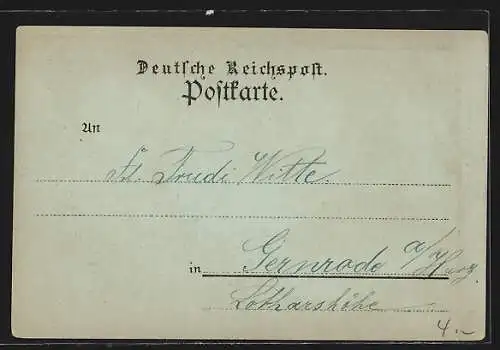 Deutsche Reichspost.
Postkarte.
An
Frl. Trudi Witte.
in Gernrode a/Harz.
Lotharshöhe
4.–